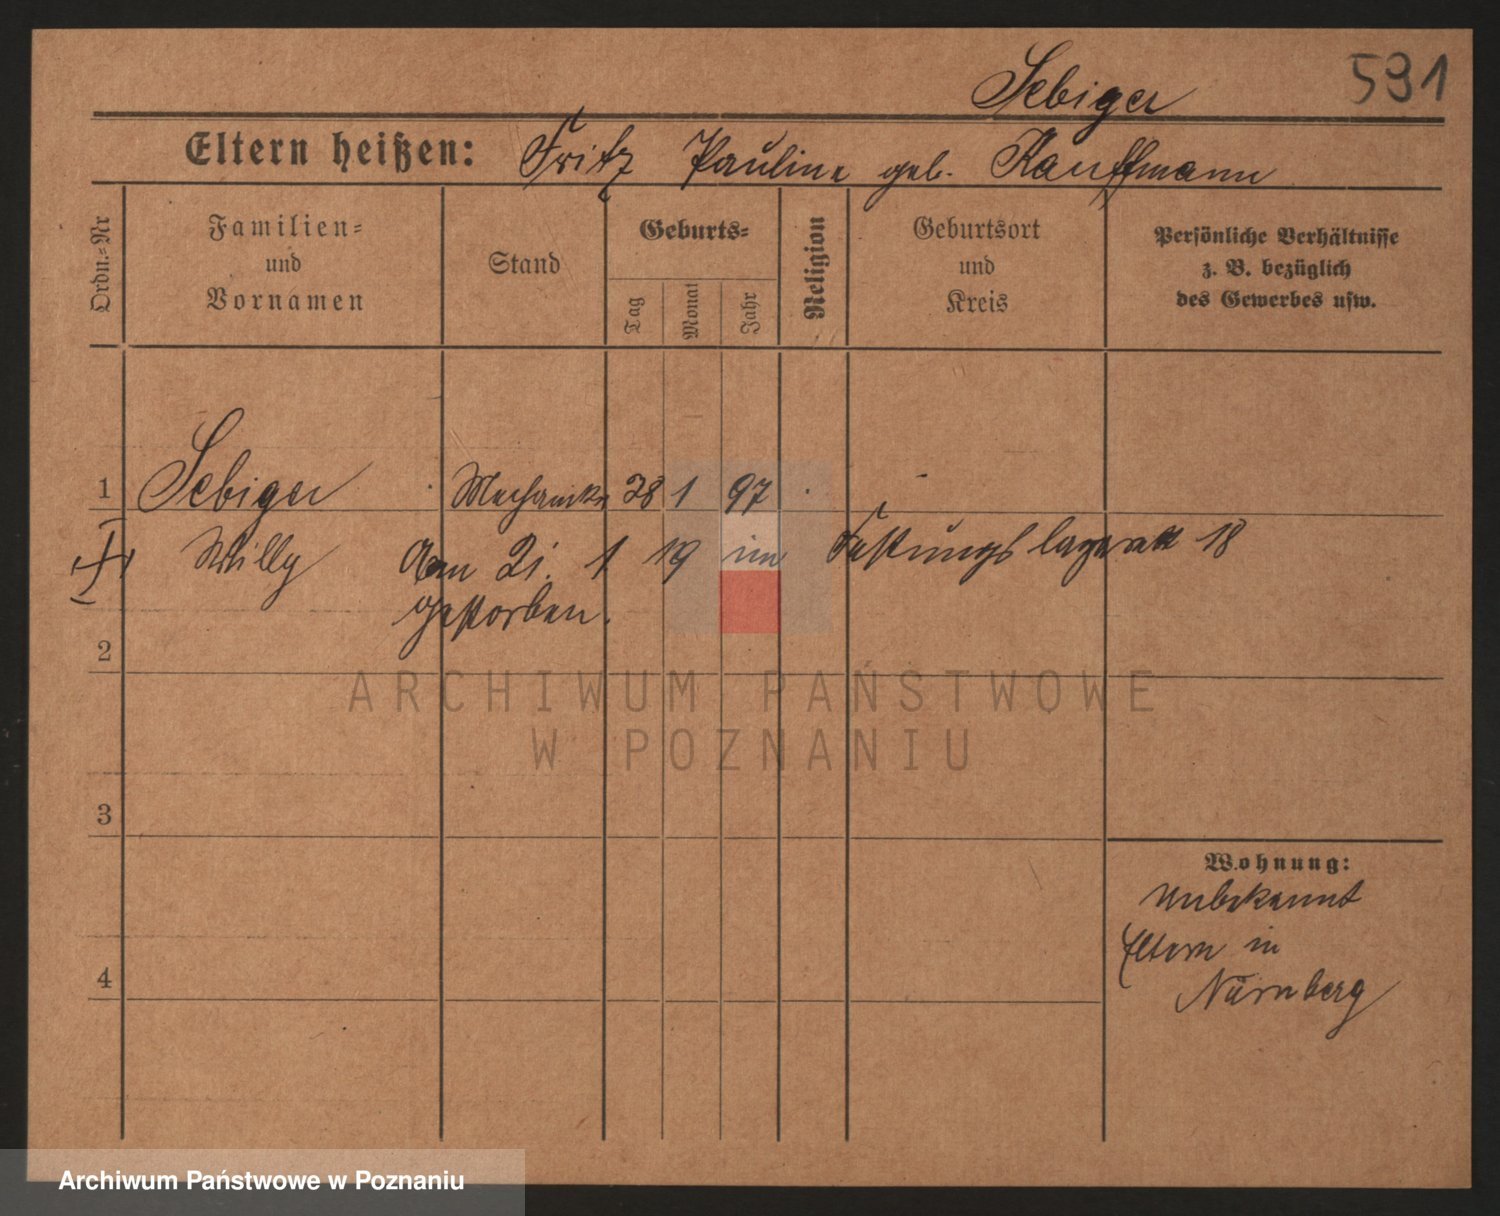 591
Sebiger
Eltern heißen: Fritz Pauline geb. Kauffmann
Ordn.=Nr
Familien=
und
Vornamen
Stand
Geburts=
Tag
Monat
Jahr
Religion
Geburtsort
und
Kreis
Persönliche Verhältnisse
z. B. bezüglich
des Gewerbes usw.
1 Sebiger Mechaniker 28 1 97
Willy Am 21. 1 19 im Festungslazarett 18
gestorben.
2
ARCHIWUM PAŃSTWOWE
W POZNANIU
3
Wohnung:
unbekannt
Eltern in
Nürnberg
4
Archiwum Państwowe w Poznaniu